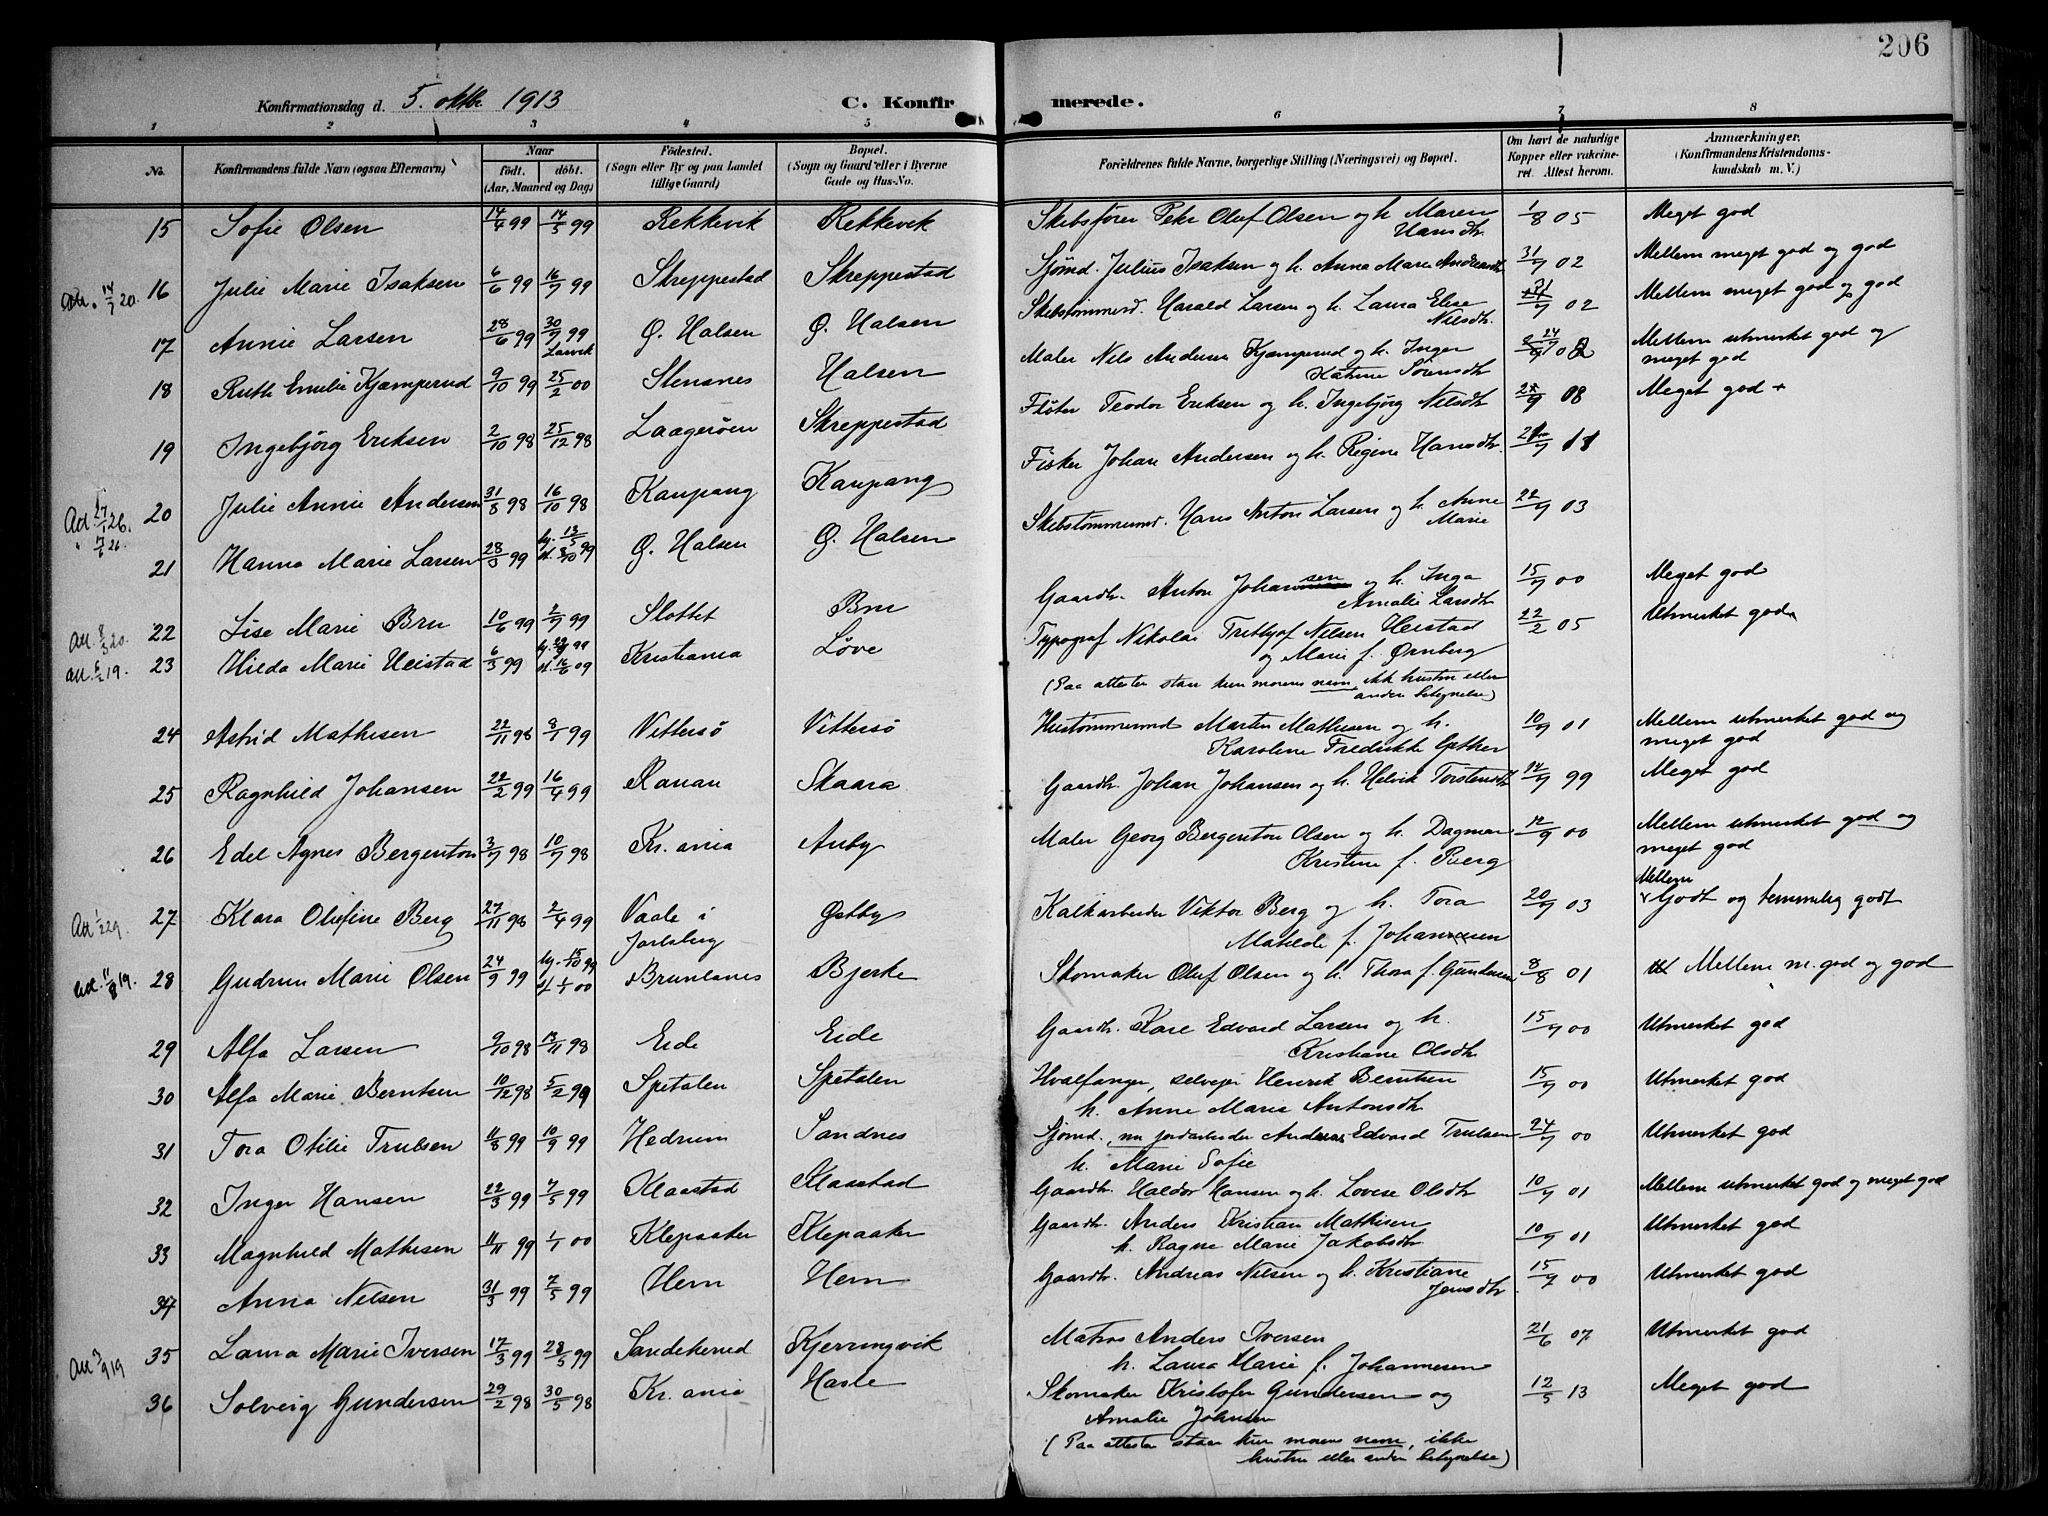 206
Konfirmationsdag d. 5. oktbr. 1913 C. Konfirmerede.
1 2 3 4 5 6 7 8
No. Konfirmandens fulde Navn (ogsaa Efternavn) Naar født. døbt. (Aar, Maaned og Dag) Fødested. (Sogn eller By og paa Landet tillige Gaard) Bopæl. (Sogn og Gaard eller i Byerne Gade og Hus-No. Forældrenes fulde Navne, borgerlige Stilling (Næringsvei) og Bopæl. Om havt de naturlige Kopper eller vakcineret. Attest herom. Anmærkninger. (Konfirmandens Kristendomskundskab m. V.)
15 Sofie Olsen 14/4 99 14/5 99 Rekkevik Rekkevik Skibsfører Peter Oluf Olsen og h. Maren Hansdtr. 1/8 05 Meget god
Att. 14/7 20. 16 Julie Marie Isaksen 6/6 99 16/7 99 Skreppestad Skreppestad Sjømd. Julius Isaksen og h. Anna Marie Andreasdtr 31/7 02 Mellem meget god og god
17 Annie Larsen 28/6 99 30/7 99 Larvik Ø. Halsen Ø. Halsen Skibstømmermd. Harald Larsen og h. Laura Elise Nilsdtr. 21/7 02 Mellem meget god og god
18 Ruth Emilie Kjæmperud 9/10 99 25/2 00 Stensnes Halsen Maler Nils Anders Kjæmperud og h. Inger Katrine Sørensdtr Mellem utmerket god og meget god
19 Ingebjørg Eriksen 2/10 98 25/12 98 Laagerøen Skreppestad Fløter Teodor Eriksen og h. Ingebjørg Nilsdtr 08 Meget god +
20 Julie Annie Andersen 31/8 98 16/10 98 Kaupang Kaupang Fisker Johan Andersen og h. Regine Hansdtr. 11
21 Hanna Marie Larsen 28/3 99 hj. 13/5 st. 8/10 99 Ø. Halsen Ø. Halsen Skibstømmermd. Hans Anton Larsen og h. Anne Marie 22/7 03
Att. 8/3 20. 22 Lise Marie Bru 10/6 99 2/7 99 Slottet Bru Gaardbr. Anton Johansen og h. Inga Amalie Larsdtr 15/9 00 Meget god
Att. 6/2 19. 23 Hilda Marie Heistad 6/3 99 Kristiania Løve Typograf Nikolai Frithjof Nilsen Heistad og Marie f. Ørnberg 22/2 05 Utmerket god
(Paa attesten staar kun morens navn, ikke hustru eller anden betegnelse)
24 Astrid Mathisen 22/11 98 8/1 99 Vittersö Vittersö Hustømmermd Martin Mathisen og h. Karoline Fredrikke 10/9 01 Mellem utmerket god og meget god
25 Ragnhild Johansen 22/2 99 16/4 99 Ranau Skaara Gaardbr. Johan Johansen og h. Helvik Torstensdtr 14/9 99 Meget god
26 Edel Agnes Bergenton 3/7 98 10/7 98 Kr.ania Auby Maler Georg Bergenton Olsen og h. Dagmar Kristine f. 12/9 00 Mellem utmerket god og meget god
Att 1/2 29. 27 Klara Olufine Berg 27/11 98 2/4 99 Vaale i Jarlsberg Østby Kalkarbeider Viktor Berg og h. Tora Matilde f. Johansen 20/9 03 Mellem Godt og temmelig godt
Att. 11/8 19. 28 Gudrun Marie Olsen 24/9 99 hj. 15/10 99 st. 1/1 00 Brunlanes Bjerke Skomaker Oluf Olsen og h. Thora f. Gundersen 8/8 01 Mellem m. god og god
29 Alfa Larsen 9/10 98 13/11 98 Eide Eide Gaardbr. Kare Edvard Larsen og h. Kristiane Olsdtr 15/9 00 Utmerket god
30 Alfa Marie Berntsen 10/12 98 5/2 99 Spetalen Spetalen Hvalfanger, selveier Henrik Berntsen h. Anne Marie Antonsdtr 15/9 00 Utmerket god
31 Tora Otilie Trulsen 11/8 99 10/9 99 Hedrum Sandnes Sjømd., nu jordarbeider Andreas Edvard Trulsen h. Marie Sofie 24/9 00 Utmerket god
32 Inger Hansen 22/3 99 7/5 99 Klaastad Klaastad Gaardbr. Haldor Hansen og h. Lovise Olsdtr 10/9 01 Mellem utmerket god og meget god
33 Magnhild Mathisen 11/11 99 1/1 00 Klepaaker Klepaaker Gaardbr. Anders Kristian Mathisen h. Ragne Marie Jakobsdtr 10/9 01 Utmerket god
34 Anna Nilsen 31/3 99 7/5 99 Hem Hem Gaardbr. Andreas Nilsen og h. Kristiane Jensdtr 15/9 00 Utmerket god
Att 3/9 19 35 Laura Marie Iversen 17/3 99 28/5 99 Sandeherred Kjerringvik Matros Anders Iversen h. Laura Marie f. Johannesen 21/6 07 Utmerket god
36 Solveig Gundersen 29/2 98 30/5 98 Kr.ania Hasle Skomaker Kristofer Gundersen og Amalie Johnsen 12/5 13 Meget god
(Paa attesten staar kun morens navn, ikke hustru eller anden betegnelse)